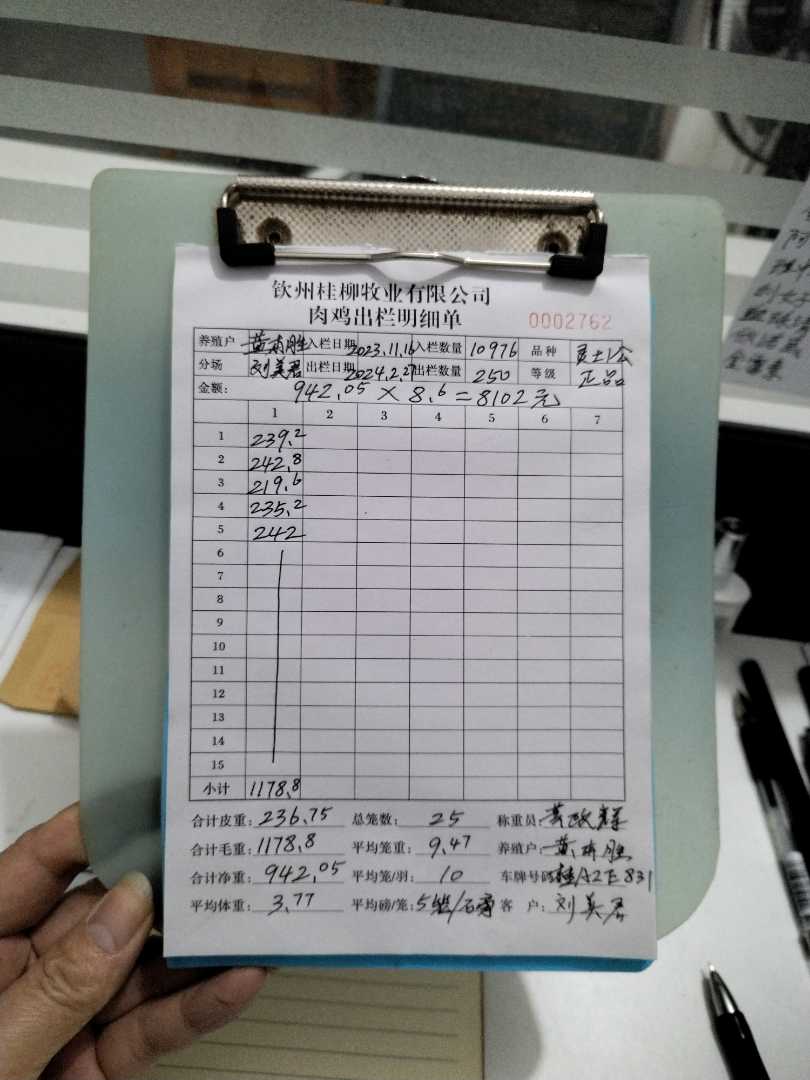 钦州桂柳牧业有限公司
肉鸡出栏明细单 0002762
养殖户 黄有胜 入栏日期 2023.11.16 入栏数量 10976 品种
分场 刘英君 出栏日期 2024.2.27 出栏数量 250 等级 正品
金额: 942.05 × 8.6 = 8102元
1 2 3 4 5 6 7
1 239.2
2 242.8
3 219.6
4 235.2
5 242
6
7
8
9
10
11
12
13
14
15
小计 1178.8
合计皮重: 236.75 总笼数: 25 称重员:
合计毛重: 1178.8 平均笼重: 9.47 养殖户: 黄有胜
合计净重: 942.05 平均笼/羽: 10 车牌号码: 桂A2E831
平均体重: 3.77 平均磅/笼: 客 户: 刘英君